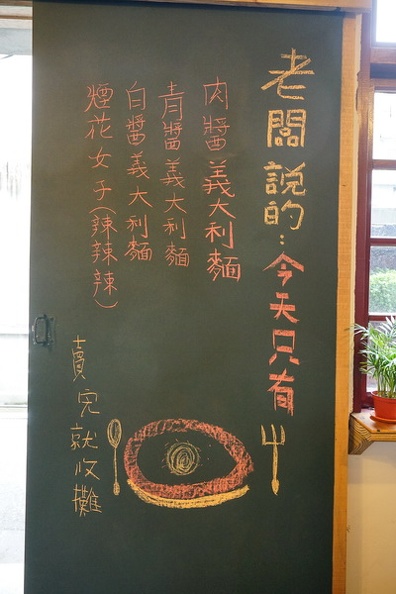 老闆說的:今天只有
肉醬義大利麵
青醬義大利麵
白醬義大利麵
煙花女子(辣辣辣)
賣完就收攤